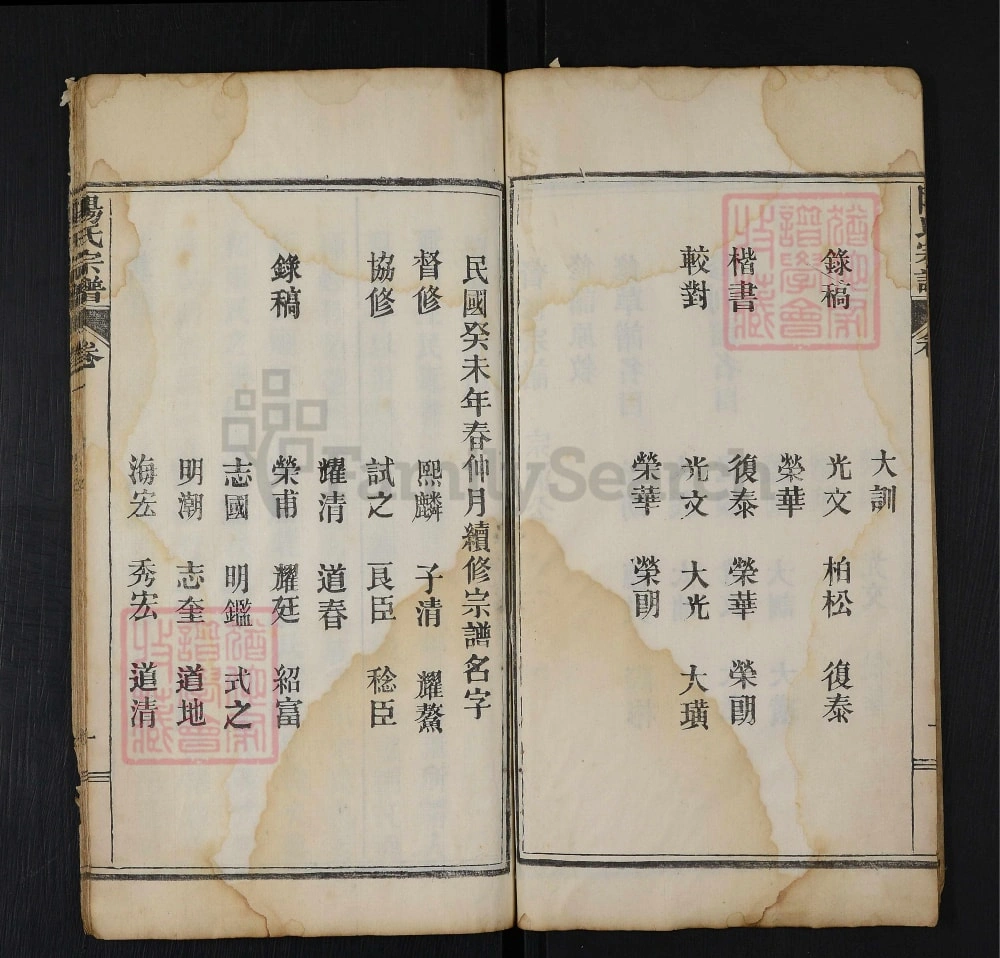 大訓
錄稿 光文 柏松 復泰
榮華
楷書 復泰 榮華 榮朙
較對 光文 大光 大璜
榮華 榮朙
猶他家
譜學會
收藏
民國癸未年春仲月續修宗譜名字
督修 熙麟 子清 耀鰲
協修 試之 良臣 稔臣
耀清 道春
錄稿 榮甫 耀廷 紹富
志國 明鑑 式之
明潮 志奎 道地
海宏 秀宏 道清
陽氏宗譜 卷一
猶他家
譜學會
收藏
FamilySearch